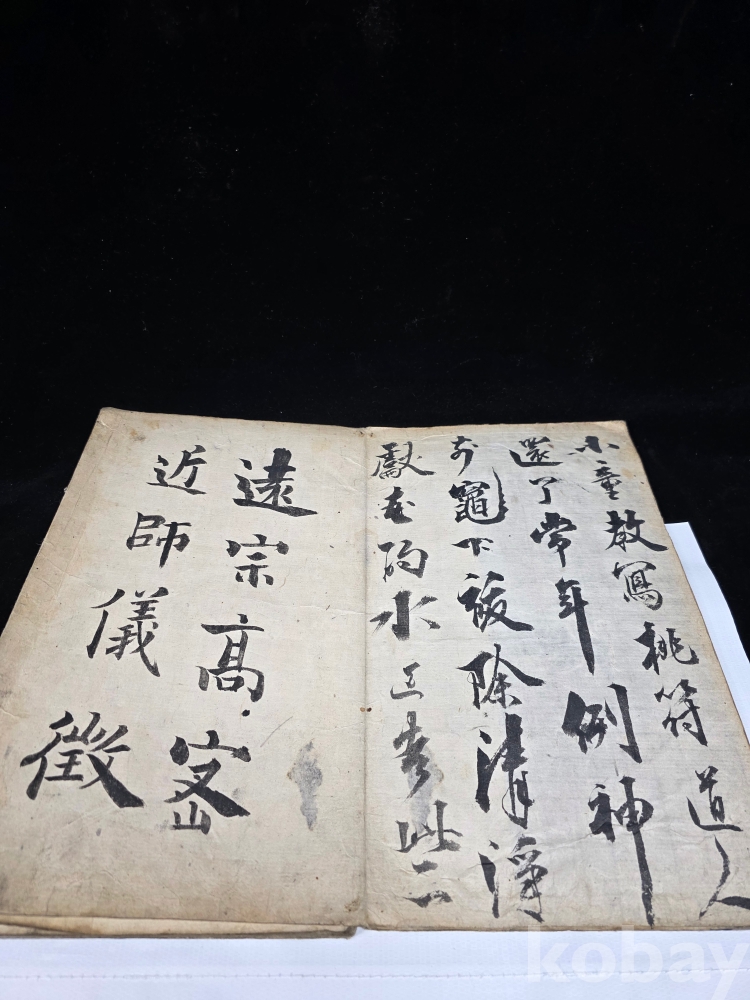 小童教寫桃符道人
還了常年例神
前竈下祓除清淨
獻花酌水些
遠宗高密
近師儀徵
kobay